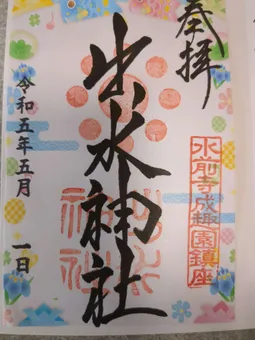 奉拝
水前寺成趣園鎮座
出水神社
令和五年五月一日